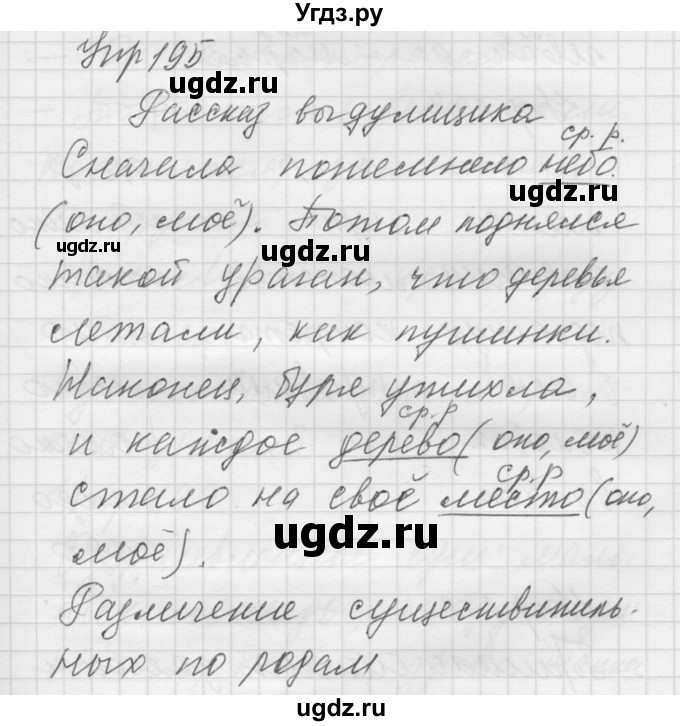 Угдз.ру
Упр 195
ugdz.ru
Рассказ выдумщика
ugdz.ru
ср. р.
Сначала потемнело небо.
ugdz.ru
(оно, моё). Потом поднялся
ugdz.ru
ugdz.ru
такой ураган, что деревья
летали, как пушинки.
Наконец, буря утихла,
ср. р
и каждое дерево (оно, моё)
ср. р
стало на своё место (оно,
ugdz.ru
моё).
Различение существитель-
ных по родам
ugdz.ru